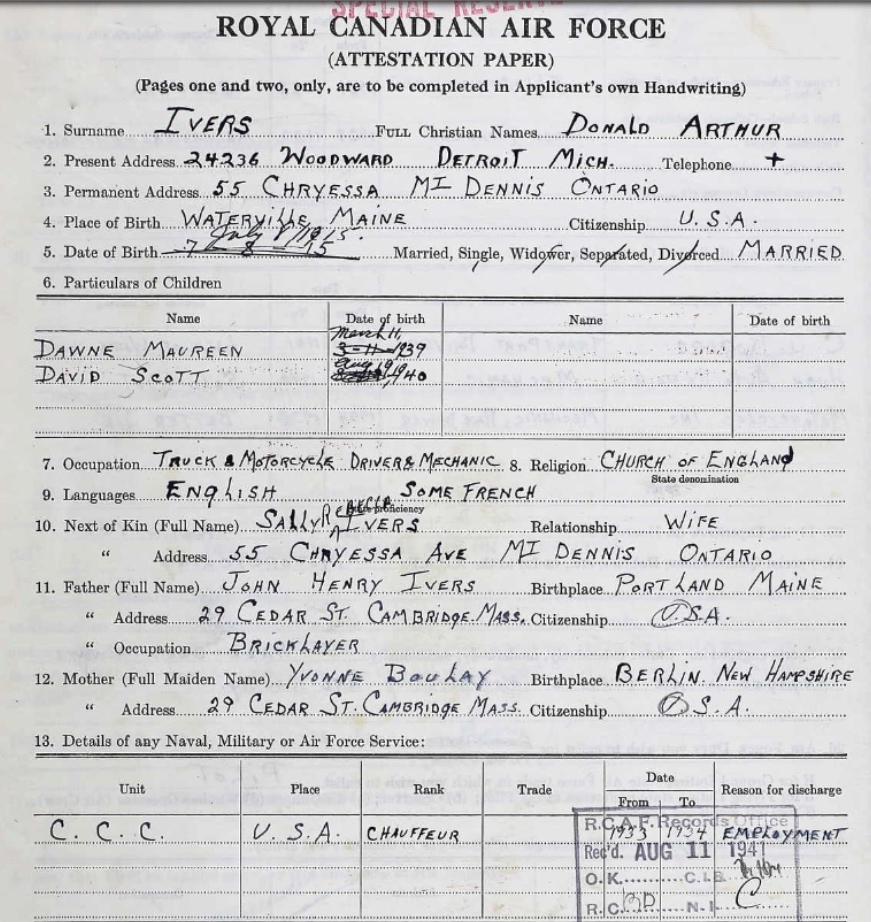 SPECIAL RESERVE
ROYAL CANADIAN AIR FORCE
(ATTESTATION PAPER)
(Pages one and two, only, are to be completed in Applicant's own Handwriting)
1. Surname IVERS FULL Christian Names DONALD ARTHUR
2. Present Address 24236 WOODWARD DETROIT MICH. Telephone +
3. Permanent Address 55 CHRYESSA MT DENNIS ONTARIO
4. Place of Birth WATERVILLE, MAINE Citizenship U.S.A.
July 8/1915.
5. Date of Birth 7 8 15 Married, Single, Widower, Separated, Divorced MARRIED
6. Particulars of Children
Name Date of birth Name Date of birth
March 11,
DAWNE MAUREEN 3-11-1939
Aug 19,
DAVID SCOTT 1940
7. Occupation TRUCK & MOTORCYCLE DRIVER & MECHANIC 8. Religion CHURCH OF ENGLAND
State denomination
9. Languages ENGLISH SOME FRENCH
State proficiency
10. Next of Kin (Full Name) SALLY IVERS Relationship WIFE
" Address 55 CHRYESSA AVE MT DENNIS ONTARIO
11. Father (Full Name) JOHN HENRY IVERS Birthplace PORTLAND MAINE
" Address 29 CEDAR ST. CAMBRIDGE. MASS. Citizenship U.S.A.
" Occupation BRICKLAYER
12. Mother (Full Maiden Name) YVONNE BOULAY Birthplace BERLIN. NEW HAMPSHIRE
" Address 29 CEDAR ST. CAMBRIDGE MASS. Citizenship U.S.A.
13. Details of any Naval, Military or Air Force Service:
Unit Place Rank Trade Date Reason for discharge
From To
R.C.A.F. Records Office
C. C. C. U.S.A. CHAUFFEUR 1933 1934 EMPLOYMENT
Rec'd. AUG 11 1941
O.K. C.I.B.
R.C. N.I. C